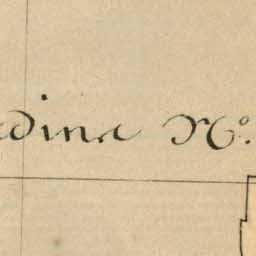 edina No.